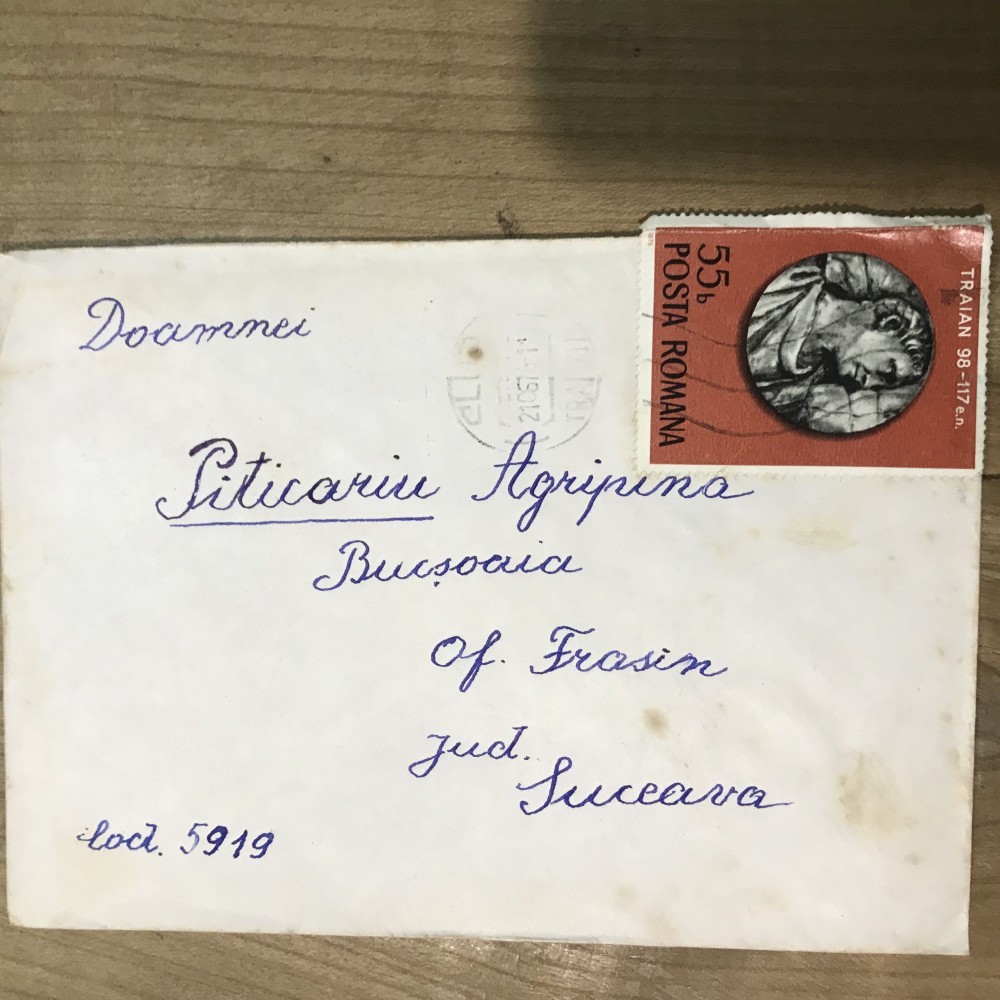 Doamnei
TRAIAN 98-117 e.n.
55b
POSTA ROMANA
Piticariu Agripina
Bucșoaia
Of. Frasin
Jud.
Suceava
Cod. 5919